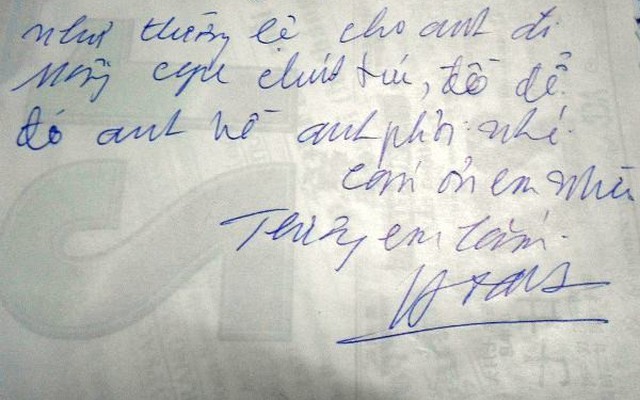 như thường lệ cho anh đi
chút xíu, đồ để
đó anh về anh phơi nhé.
cám ơn em nhiều
Thương em lắm.